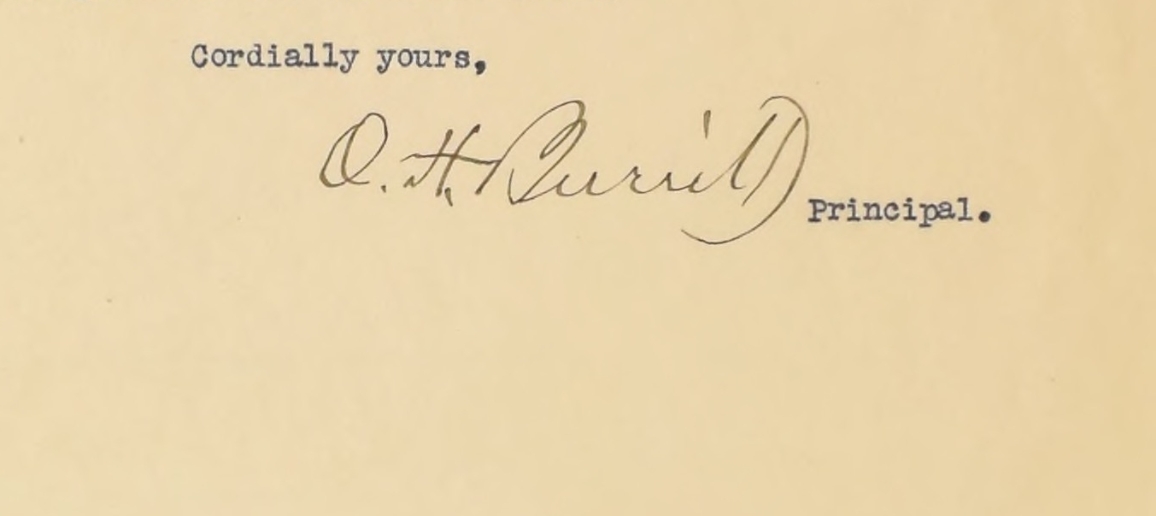 Cordially yours,
O. H. Burritt
Principal.